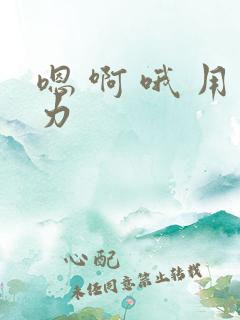 嗯啊哦用
力
心配
未经同意禁止转载